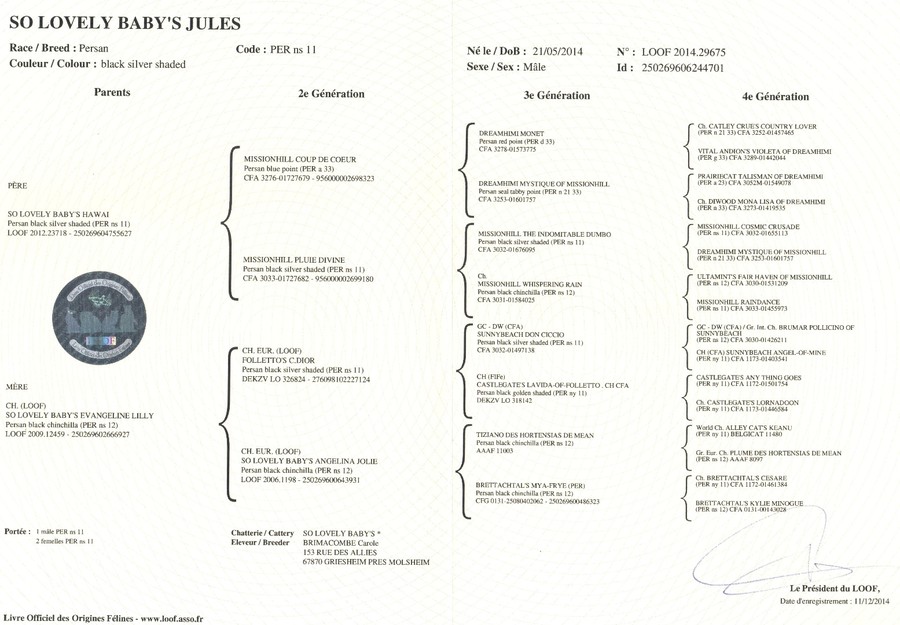 SO LOVELY BABY'S JULES
Race / Breed : Persan
Code : PER ns 11
Couleur / Colour : black silver shaded
Né le / DoB : 21/05/2014
N° : LOOF 2014.29675
Sexe / Sex : Mâle
Id : 250269606244701
Parents
2e Génération
3e Génération
4e Génération
PÈRE
SO LOVELY BABY'S HAWAI
Persan black silver shaded (PER ns 11)
LOOF 2012.23718 - 250269604755627
MÈRE
CH. (LOOF)
SO LOVELY BABY'S EVANGELINE LILLY
Persan black chinchilla (PER ns 12)
LOOF 2009.12459 - 250269602666927
MISSIONHILL COUP DE COEUR
Persan blue point (PER a 33)
CFA 3276-01727679 - 956000002698323
MISSIONHILL PLUIE DIVINE
Persan black silver shaded (PER ns 11)
CFA 3033-01727682 - 956000002699180
CH. EUR. (LOOF)
FOLLETTO'S C.DIOR
Persan black silver shaded (PER ns 11)
DEKZV LO 326824 - 276098102227124
CH. EUR. (LOOF)
SO LOVELY BABY'S ANGELINA JOLIE
Persan black chinchilla (PER ns 12)
LOOF 2006.1198 - 250269500643931
DREAMHIMI MONET
Persan red point (PER d 33)
CFA 3278-01573775
DREAMHIMI MYSTIQUE OF MISSIONHILL
Persan seal tabby point (PER n 21 33)
CFA 3253-01601757
MISSIONHILL THE INDOMITABLE DUMBO
Persan black silver shaded (PER ns 11)
CFA 3032-01676095
Ch
MISSIONHILL WHISPERING RAIN
Persan black chinchilla (PER ns 12)
CFA 3031-01584025
GC - DW (CFA)
SUNNYBEACH DON CICCIO
Persan black silver shaded (PER ns 11)
CFA 3032-01497138
CH (FIFe)
CASTLEGATE'S LAVIDA-OF-FOLLETTO . CH CFA
Persan black golden shaded (PER ny 11)
DEKZV LO 318142
TIZIANO DES HORTENSIAS DE MEAN
Persan black chinchilla (PER ns 12)
AAAF 11003
BRETTACHTAL'S MYA-FRYE (PER)
Persan black chinchilla (PER ns 12)
CFG 0131-25080402062 - 250269500486323
Ch. CATLEY CRUE'S COUNTRY LOVER
(PER n 21 33) CFA 3252-01457465
VITAL ANDION'S VIOLETA OF DREAMHIMI
(PER g 33) CFA 3289-01442044
PRAIRIECAT TALISMAN OF DREAMHIMI
(PER a 23) CFA 3052M-01549078
Ch. DIWOOD MONA LISA OF DREAMHIMI
(PER n 33) CFA 3273-01419535
MISSIONHILL COSMIC CRUSADE
(PER ns 11) CFA 3032-01655113
DREAMHIMI MYSTIQUE OF MISSIONHILL
(PER n 21 33) CFA 3253-01601757
ULTAMINT'S FAIR HAVEN OF MISSIONHILL
(PER ns 12) CFA 3030-01531209
MISSIONHILL RAINDANCE
(PER ns 11) CFA 3033-01455973
GC - DW (CFA) / Gr. Int. Ch. BRUMAR POLLICINO OF
SUNNYBEACH
(PER ns 12) CFA 3030-01426211
CH (CFA) SUNNYBEACH ANGEL-OF-MINE
(PER ny 11) CFA 1173-01403541
CASTLEGATE'S ANY THING GOES
(PER ny 11) CFA 1172-01501754
Ch. CASTLEGATE'S LORNADOON
(PER ny 11) CFA 1173-01446584
World Ch. ALLEY CAT'S KEANU
(PER ny 11) BELGICAT 11480
Gr. Eur. Ch. PLUME DES HORTENSIAS DE MEAN
(PER ns 12) AAAF 8097
Ch. BRETTACHTAL'S CESARE
(PER ny 11) CFA 1172-01461384
BRETTACHTAL'S KYLIE MINOGUE
(PER ns 12) CFA 0131-00143028
Portée : 1 mâle PER ns 11
2 femelles PER ns 11
Chatterie / Cattery SO LOVELY BABY'S *
Eleveur / Breeder BRIMACOMBE Carole
153 RUE DES ALLIES
67870 GRIESHEIM PRES MOLSHEIM
Le Président du LOOF,
Date d'enregistrement : 11/12/2014
Livre Officiel des Origines Félines - www.loof.asso.fr